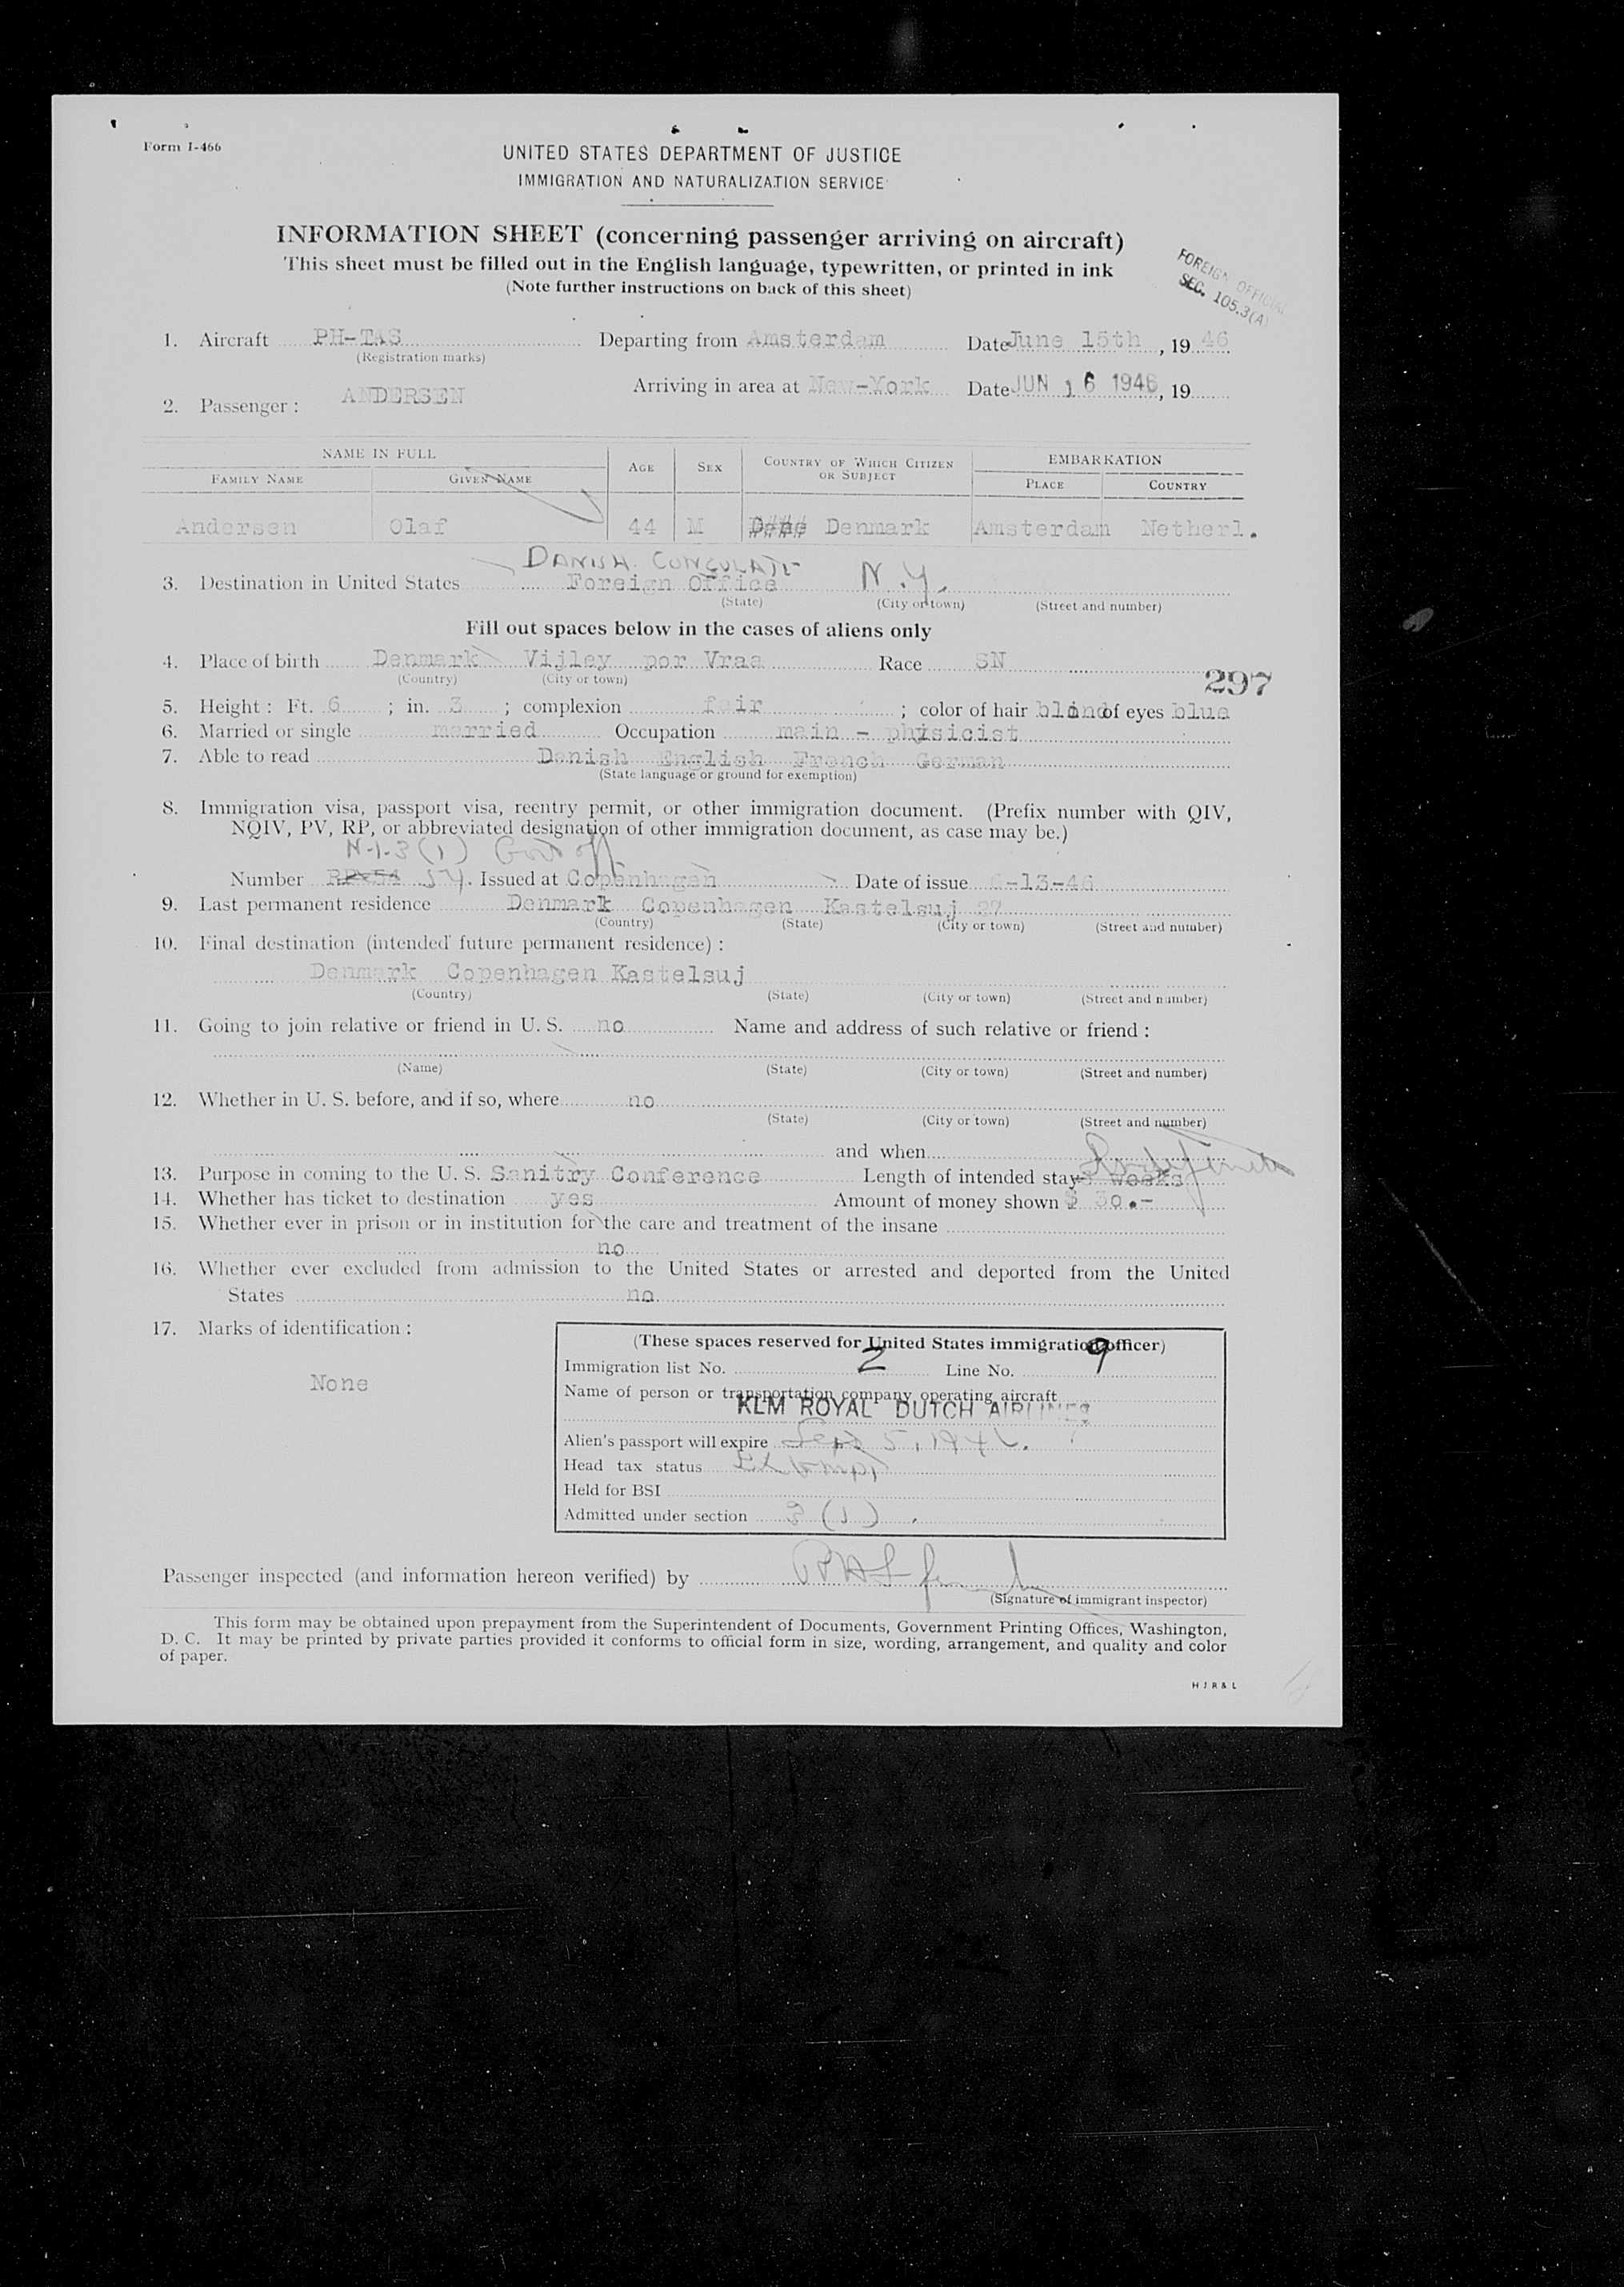 Form I-466
UNITED STATES DEPARTMENT OF JUSTICE
IMMIGRATION AND NATURALIZATION SERVICE
INFORMATION SHEET (concerning passenger arriving on aircraft)
This sheet must be filled out in the English language, typewritten, or printed in ink
(Note further instructions on back of this sheet)
FOREIGN OFFICIAL
SEC. 105.3(A)
1. Aircraft PH-TAS Departing from Amsterdam Date June 15th, 1946
(Registration marks)
Arriving in area at New-York Date JUN 16 1946, 19
2. Passenger: ANDERSEN
NAME IN FULL AGE SEX COUNTRY OF WHICH CITIZEN OR SUBJECT EMBARKATION
FAMILY NAME GIVEN NAME PLACE COUNTRY
Andersen Olaf 44 M Denmark Amsterdam Netherl.
DANISH CONSULATE N.Y.
3. Destination in United States Foreign Office
(State) (City or town) (Street and number)
Fill out spaces below in the cases of aliens only
4. Place of birth Denmark Vijley por Vraa Race SN
(Country) (City or town)
297
5. Height: Ft. 6; in. 3; complexion fair; color of hair blond of eyes blue
6. Married or single married Occupation main - physicist
7. Able to read Danish English French German
(State language or ground for exemption)
8. Immigration visa, passport visa, reentry permit, or other immigration document. (Prefix number with QIV,
NQIV, PV, RP, or abbreviated designation of other immigration document, as case may be.)
N-1-3(1) Govt off.
Number 54. Issued at Copenhagen Date of issue 6-13-46
9. Last permanent residence Denmark Copenhagen Kastelsuj 27
(Country) (State) (City or town) (Street and number)
10. Final destination (intended future permanent residence):
Denmark Copenhagen Kastelsuj
(Country) (State) (City or town) (Street and number)
11. Going to join relative or friend in U. S. no Name and address of such relative or friend:
(Name) (State) (City or town) (Street and number)
12. Whether in U. S. before, and if so, where no
(State) (City or town) (Street and number)
and when
13. Purpose in coming to the U. S. Sanitry Conference Length of intended stay weeks Indefinite
14. Whether has ticket to destination yes Amount of money shown $ 30.-
15. Whether ever in prison or in institution for the care and treatment of the insane
no
16. Whether ever excluded from admission to the United States or arrested and deported from the United
States no
17. Marks of identification:
None
(These spaces reserved for United States immigration officer)
Immigration list No. 2 Line No. 9
Name of person or transportation company operating aircraft
KLM ROYAL DUTCH AIRLINES
Alien's passport will expire Sept 5, 1946.
Head tax status Exempt
Held for BSI
Admitted under section 3(1)
Passenger inspected (and information hereon verified) by
(Signature of immigrant inspector)
This form may be obtained upon prepayment from the Superintendent of Documents, Government Printing Offices, Washington,
D. C. It may be printed by private parties provided it conforms to official form in size, wording, arrangement, and quality and color
of paper.
H J R & L